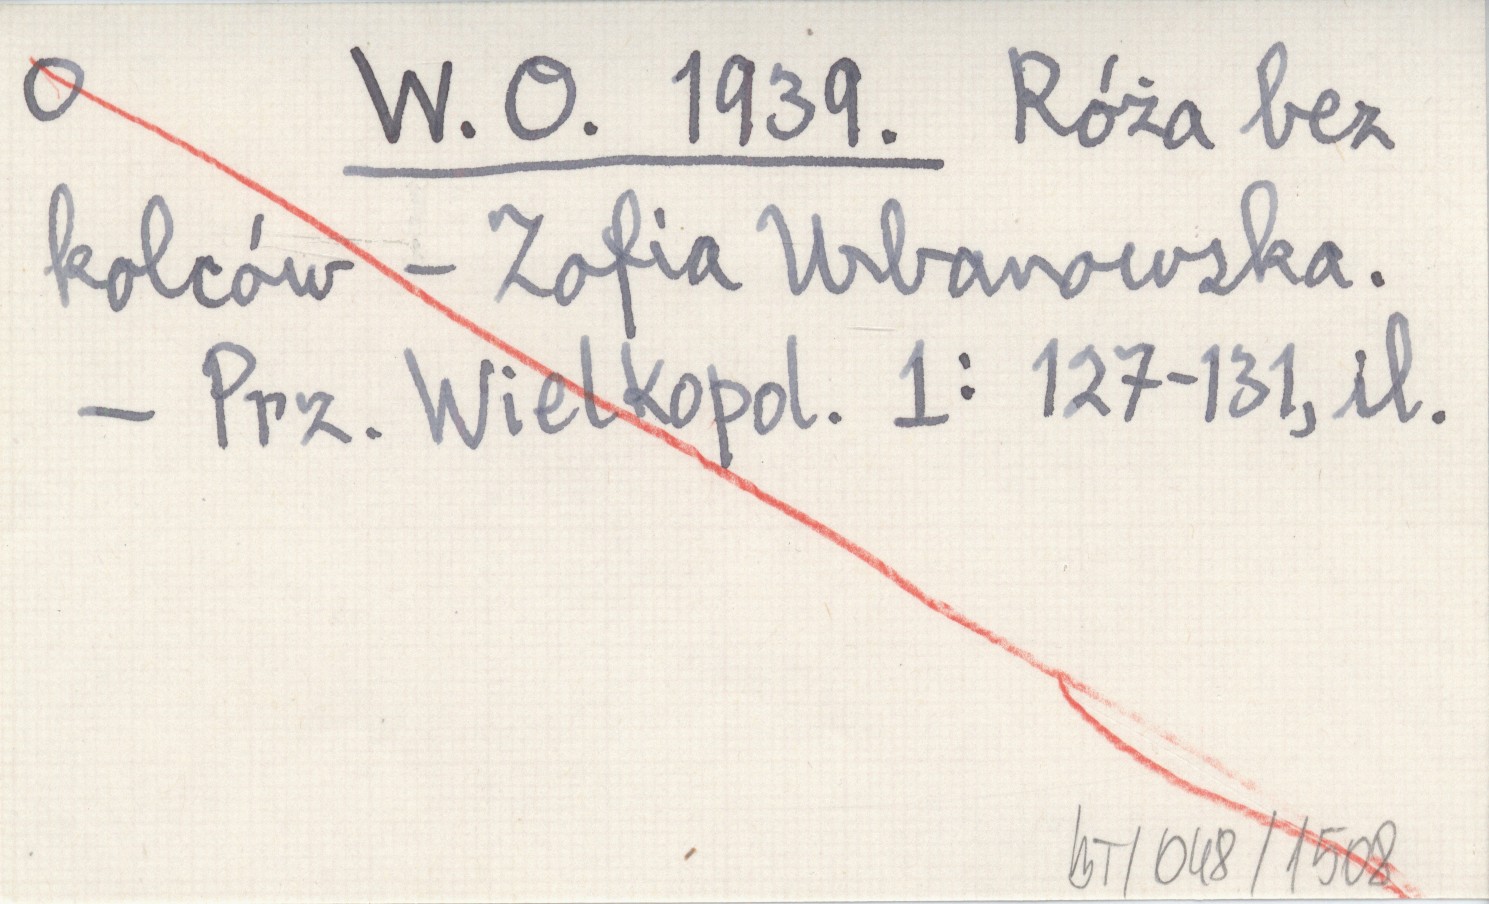 O W. O. 1939. Róża bez
kolców – Zofia Urbanowska.
– Prz. Wielkopol. 1: 127-131, il.
/048/1508